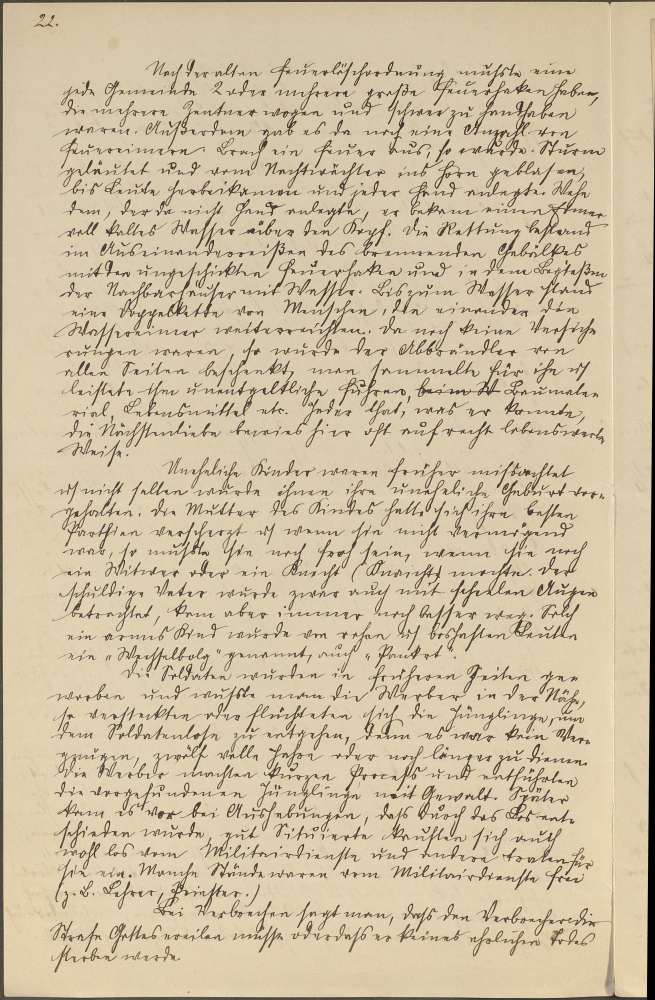 22.
Nach der alten Feuerlöschordnung mußte eine
jede Gemeinde 2 oder mehrere große Feuerhaken haben,
die mehrere Zentner wogen und schwer zu handhaben
waren. Außerdem gab es da noch eine Anzahl von
Feuereimern. Brach ein Feuer aus, so wurde Sturm
geläutet und vom Nachtwächter ins Horn geblasen,
bis Leute herbeikamen und jeder Hand anlegte. Wehe
dem, der da nicht Hand anlegte, er bekam einen Eimer
voll kaltes Wasser über den Kopf. Die Rettung bestand
im Auseinanderreißen des brennenden Gebälkes
mit den ungeschickten Feuerhaken und in dem Begießen
der Nachbarhäuser mit Wasser. Bis zum Wasser stand
eine Doppelkette von Menschen, die einander die
Wassereimer weiterreichten. Da noch keine Versiche
rungen waren, so wurde der Abbrändler von
allen Seiten beschenkt, man sammelte für ihn u
leistete ihm unentgeltliche Fuhren, Baumate
rial, Lebensmittel etc. Jeder that, was er konnte,
die Nächstenliebe bewies hier oft auf recht lobenswerte
Weise.
Uneheliche Kinder waren früher mißachtet
u nicht selten wurde ihnen ihre uneheliche Geburt vor-
gehalten. Die Mutter des Kindes hatte sich ihre besten
Parthien verscherzt u wenn sie nicht vermögend
war, so mußte sie noch froh sein, wenn sie noch
ein Witwer oder ein Knecht (Knaicht) mochte. Der
schuldige Vater wurde zwar auch mit scheelen Augen
betrachtet, kam aber immer noch besser weg. Solch
ein armes Kind wurde von rohen u boshaften Leuten
ein „Wechselbolg" genannt, auch „Pankrt".
Die Soldaten wurden in früheren Zeiten gew
worben und wußte man die Werber in der Nähe,
so versteckten oder flüchteten sich die Jünglinge, um
dem Soldatenlose zu entgehen, denn es war kein Ver-
gnügen, zwölf volle Jahre oder noch länger zu dienen.
Die Werber machten kurzen Proceß und entführten
die vorgefundenen Jünglinge mit Gewalt. Später
kam es vor bei Aushebungen, daß durch das Los ent-
schieden wurde, gut Situierte kauften sich auch
wohl los vom Militairdienste und andere traten für
sie ein. Manche Stände waren vom Militairdienste frei
(z. B. Lehrer, Priester.)
Bei Verbrechen sagt man, daß den Verbrecher die
Strafe Gottes ereilen müsse oder daß er keines ehrlichen Todes
sterben werde